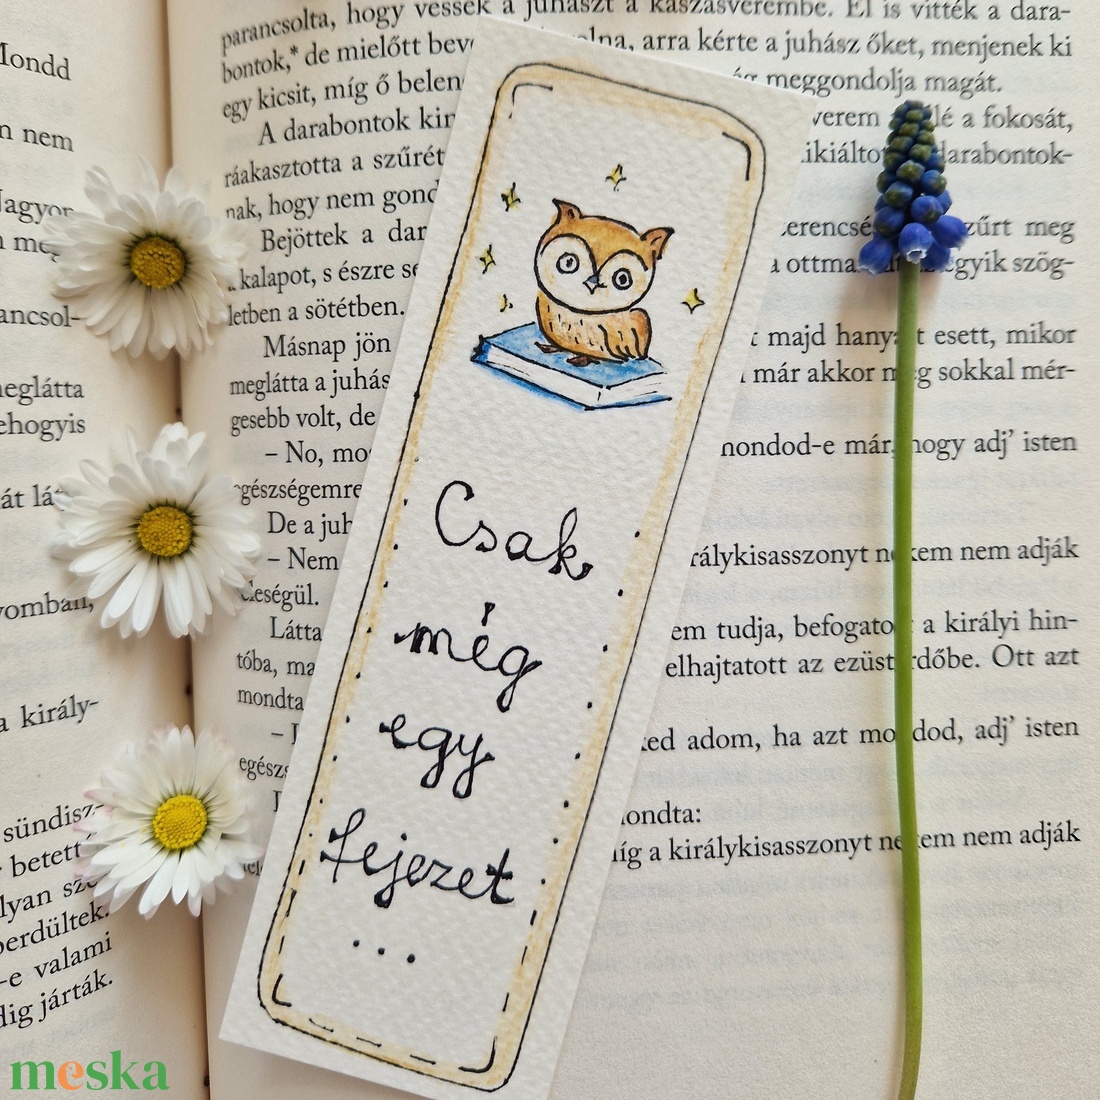 Mondd
n nem
Nagyon
ancsol-
meglátta
ehogyis
yomban,
a király-
sündisz-
betett
perdültek.
-e valami
dig járták.
parancsolta, hogy vessék a juhászt a kaszásverembe. El is vitték a dara-
bontok,* de mielőtt arra kérte a juhász őket, menjenek ki
egy kicsit, míg ő meggondolja magát.
A darabontok verem a fokosát,
ráakasztotta a szűrét darabontok-
nak, hogy nem
Bejöttek a szűrt meg
kalapot, s észre egyik szög-
letben a sötétben.
Másnap jön majd hanyatt esett, mikor
meglátta a már akkor meg sokkal mér-
gesebb volt, de
– No, mondod-e már, hogy adj’ isten
egészségemre
De a
– Nem királykisasszonyt nekem nem adják
feleségül.
Látta nem tudja, befogatott a királyi hin-
tóba, elhajtatott az ezüsterdőbe. Ott azt
mondta
adom, ha azt mondod, adj’ isten
mondta:
míg a királykisasszonyt nekem nem adják
Csak
még
egy
fejezet
...
meska